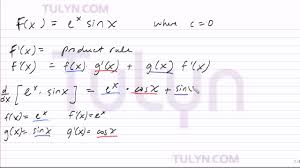 TULYN.COM
f(x) = e^x sin x where c = 0
f'(x) = product rule
f'(x) = f(x) g'(x) + g(x) f'(x)
d/dx [e^x · sin x] = e^x · cos x + sin x
f(x) = e^x f'(x) = e^x
g(x) = sin x g'(x) = cos x
TULYN
TULYN.COM